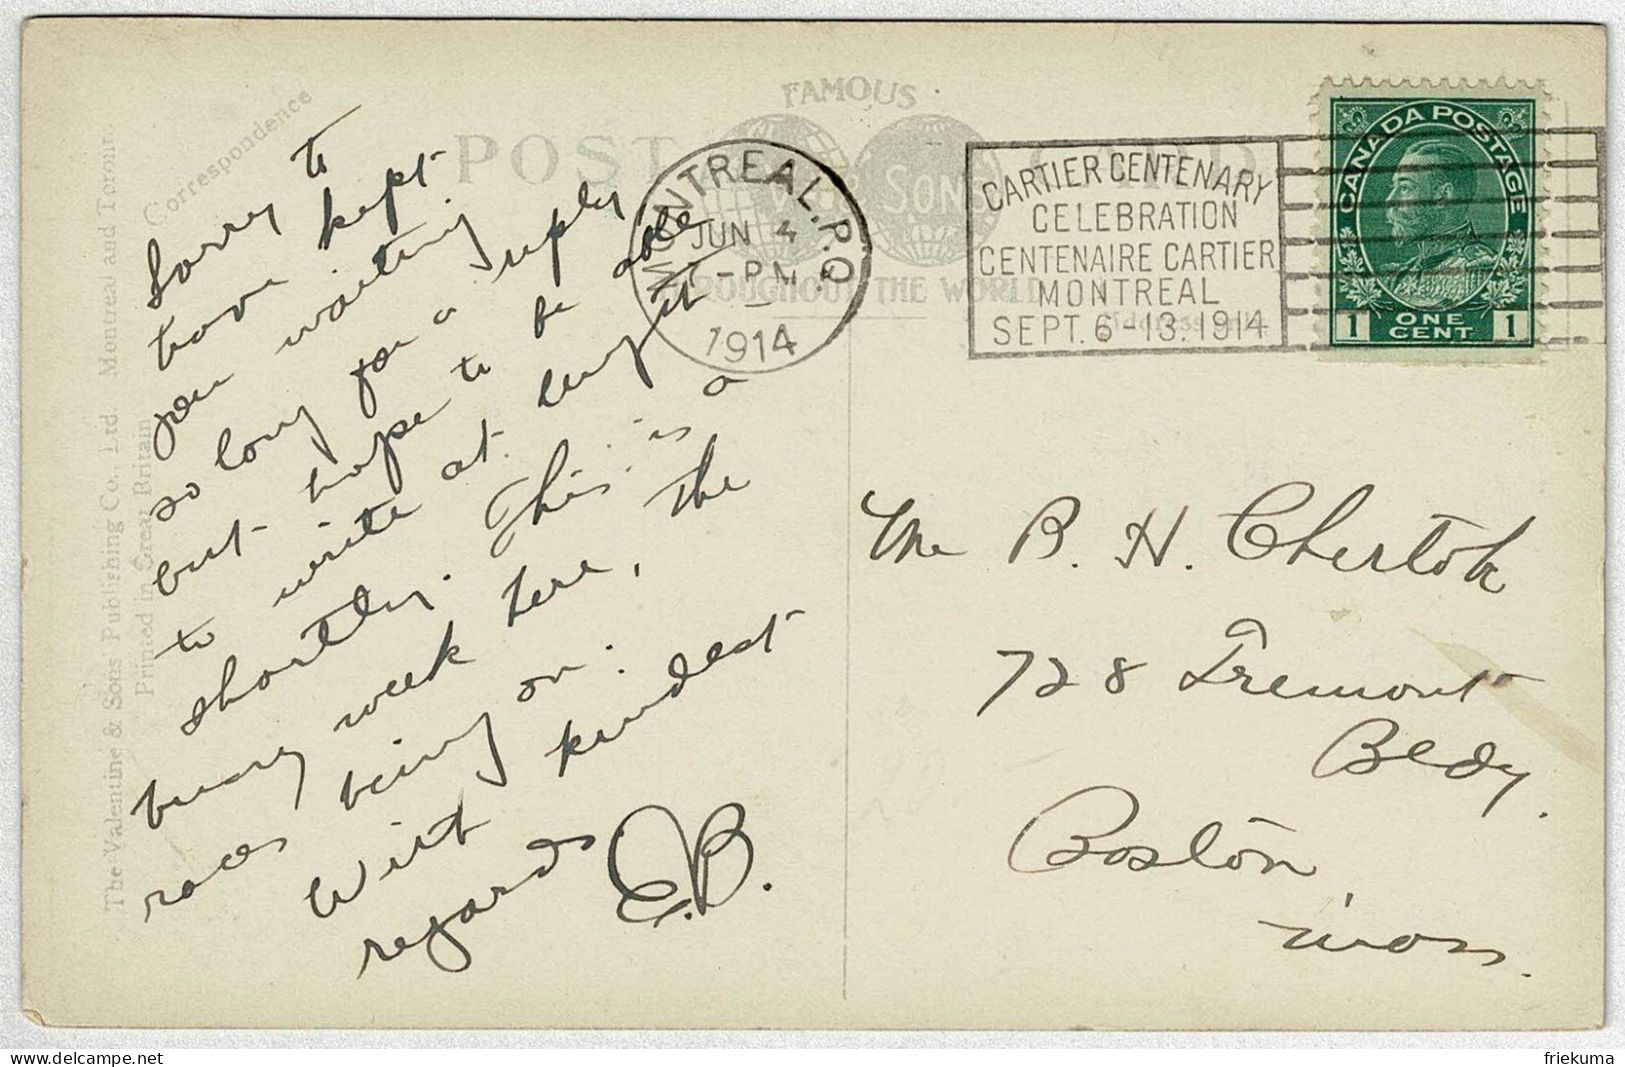 Correspondence
The Valentine & Sons Publishing Co., Ltd. Montreal and Toronto.
Printed in Great Britain
FAMOUS
POST CARD
SONS
THROUGHOUT THE WORLD
MONTREAL. P.Q.
JUN 4
7-PM
1914
CARTIER CENTENARY
CELEBRATION
CENTENAIRE CARTIER
MONTREAL
SEPT. 6-13. 1914
CANADA POSTAGE
1 ONE CENT 1
Sorry to
have kept
you waiting
so long for a reply
but hope to be able
to write at length
shortly. This is a
busy week here, the
races being on.
With kindest
regards
E.B.
Mr B. H. Chertok
728 Tremont
Bldg.
Boston,
Mass.
delcampe.net
friekuma